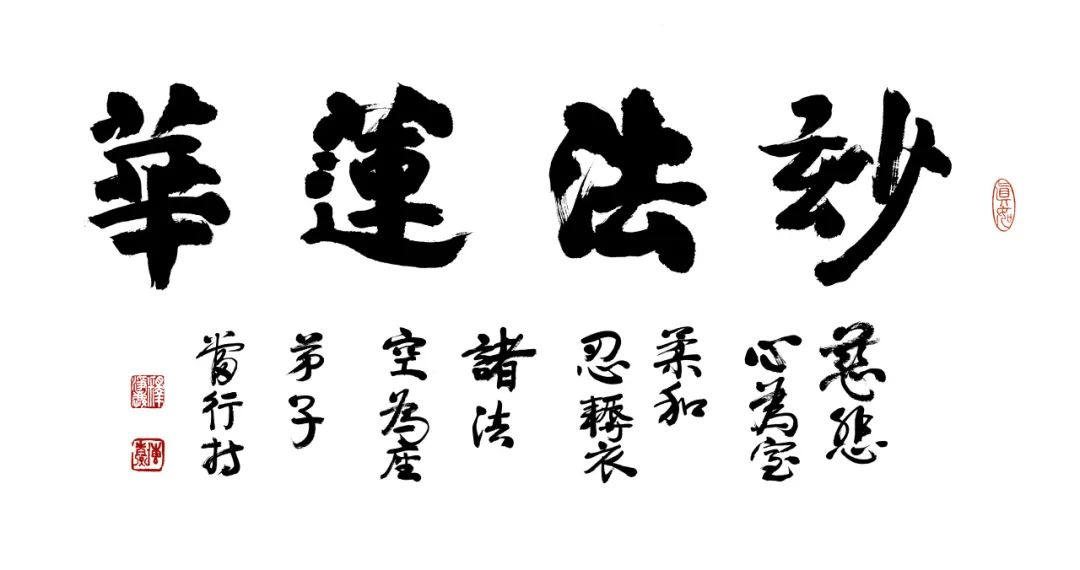 妙法蓮華
慈悲
心為室
柔和
忍辱衣
諸法
空為座
弟子
當行持
真如